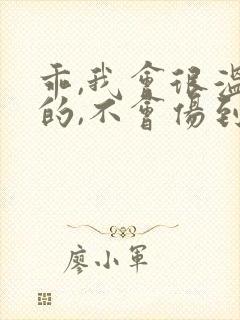 乖,我會很溫
的,不會傷到
廖小軍